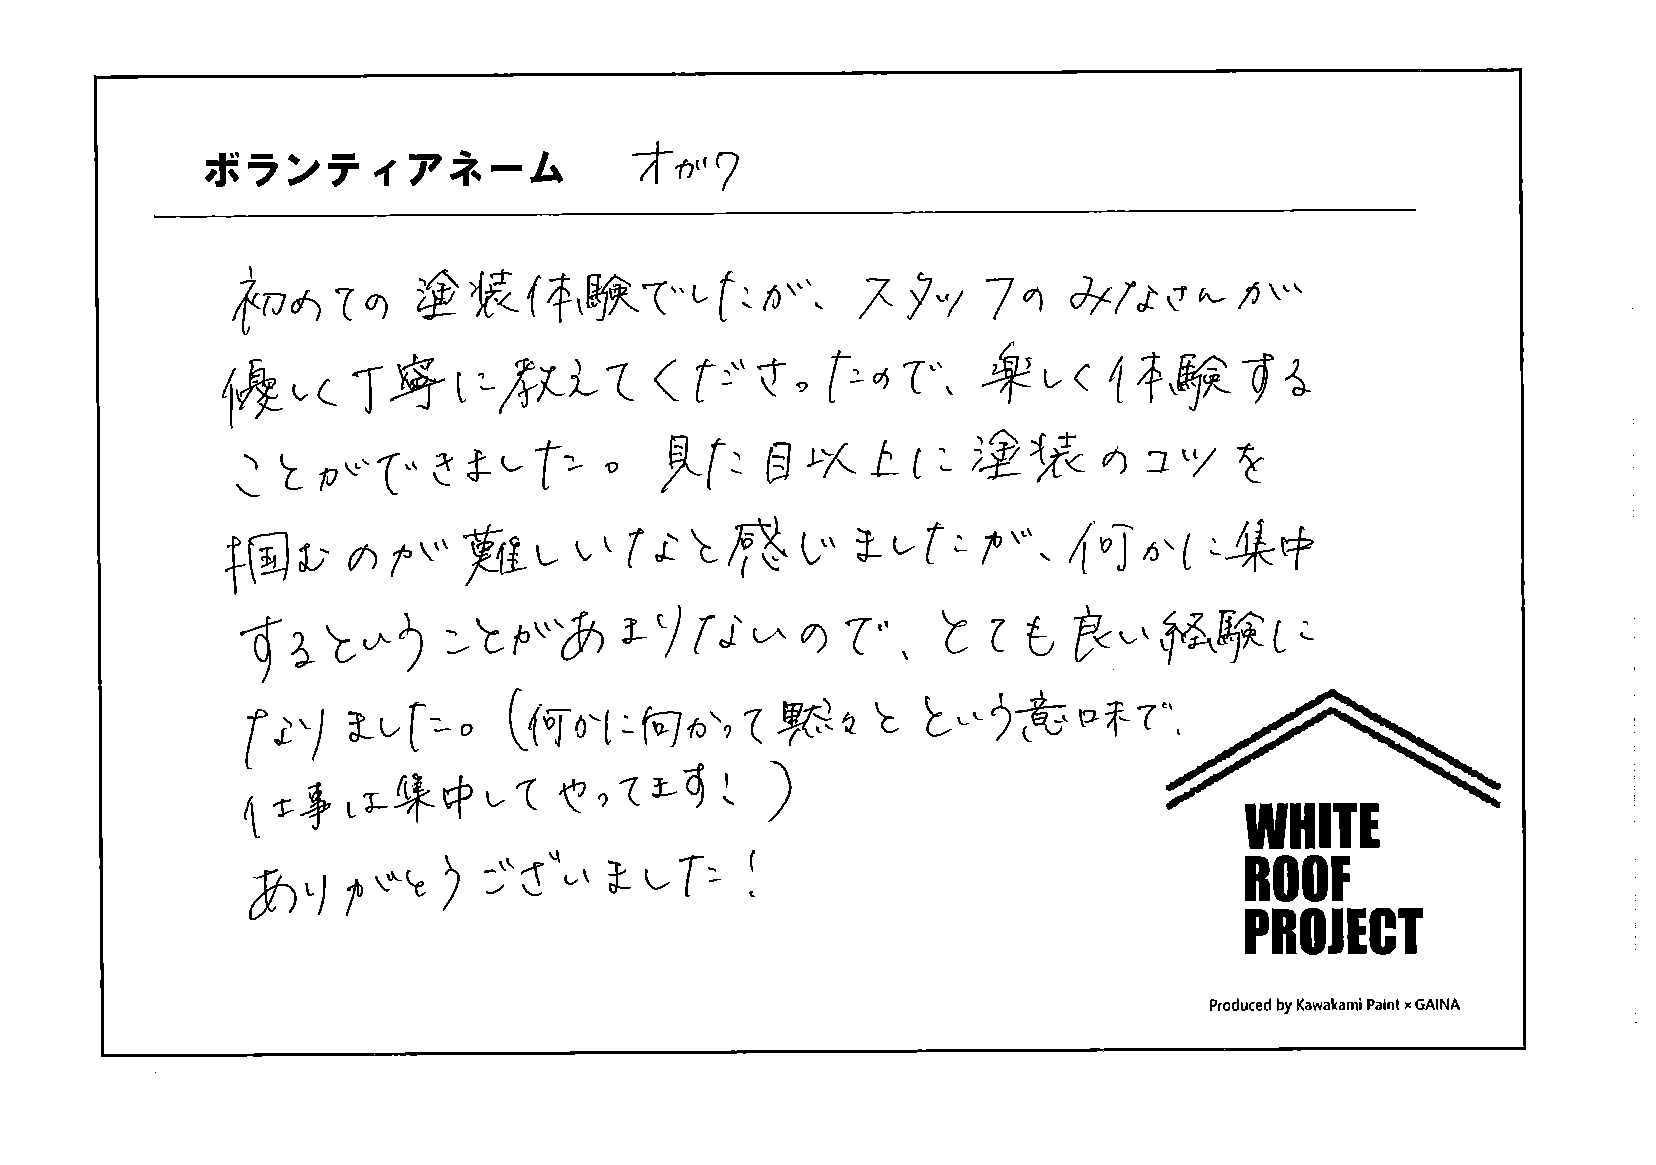 ボランティアネーム オガワ
初めての塗装体験でしたが、スタッフのみなさんが
優しく丁寧に教えてくださったので、楽しく体験する
ことができました。見た目以上に塗装のコツを
掴むのが難しいなと感じましたが、何かに集中
するということがあまりないので、とても良い経験に
なりました。(何かに向かって黙々と という意味で、
仕事は集中してやってます!)
ありがとうございました!
WHITE
ROOF
PROJECT
Produced by Kawakami Paint × GAINA